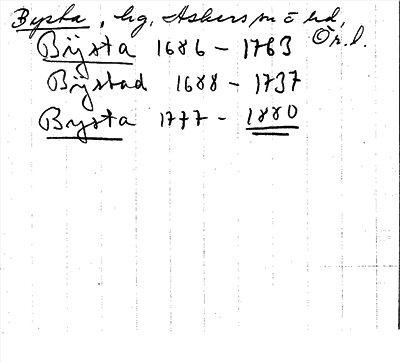 Bysta, hg, Askers sn o hd,
Ör. l.
Bÿsta 1686 – 1763
Bÿstad 1688 – 1737
Bysta 1777 – 1880